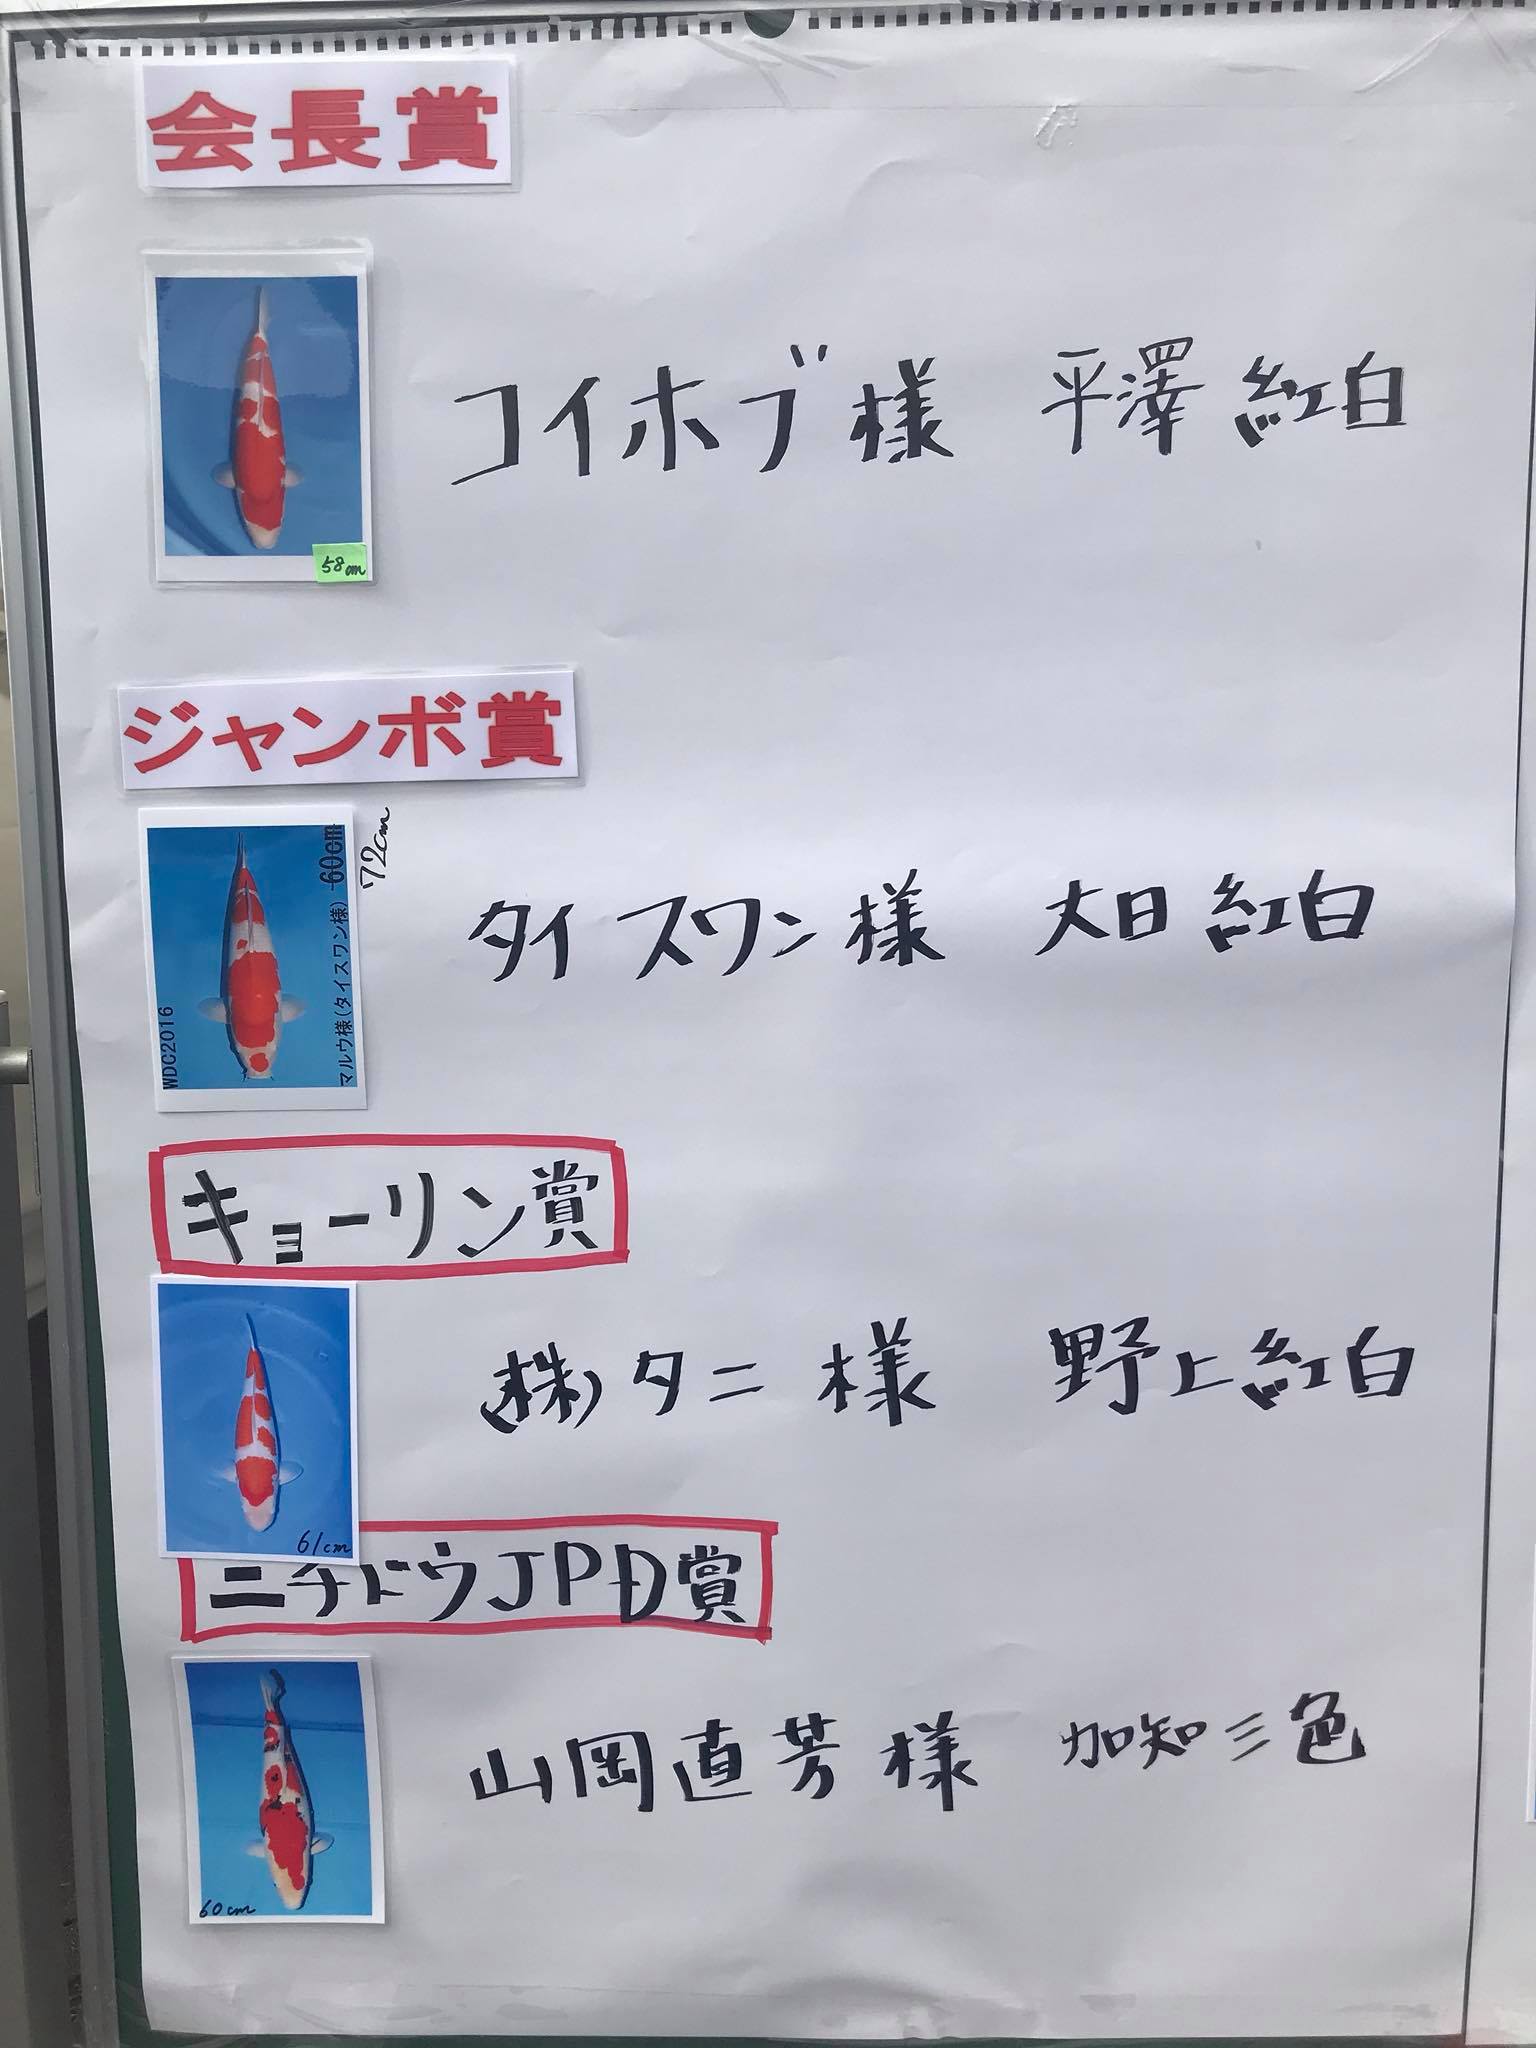 会長賞
コイホブ様 平澤 紅白
58cm
ジャンボ賞
WDC2016
マルウ様(タイスワン様) 60cm
72cm
タイ スワン様 大日 紅白
キョーリン賞
(株)タニ様 野上紅白
61cm
ニチドウJPD賞
山岡直芳様 加知三色
60cm